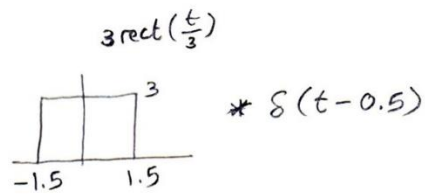 3 rect(t/3)
3
* δ(t-0.5)
-1.5 1.5